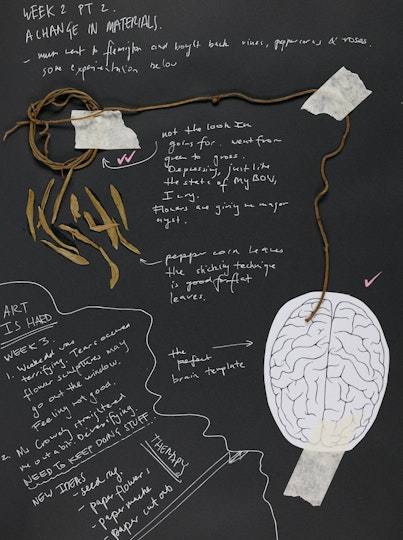 WEEK 2 PT 2.
A CHANGE IN MATERIALS.
- mum went to flemington and bought back vines, peppercorns & roses.
some experimentation below
not the look Im
going for. went from
green to gross.
Depressing, just like
the state of My BOW,
I cry.
Flowers are giving me major
angst.
pepper corn leaves
the stitching technique
is good for flat
leaves.
the perfect
brain template
ART
IS HARD
WEEK 3.
1. Weekend was
terrifying. Tears occured
flower sculptures may
go out the window.
Feeling not good.
2. Ms Crowdy straightened
me out a bit. De-
NEED TO KEEP DOING STUFF
THERAPY
NEW IDEAS
- seed
- paper flowers
- paper mache
- paper cut outs